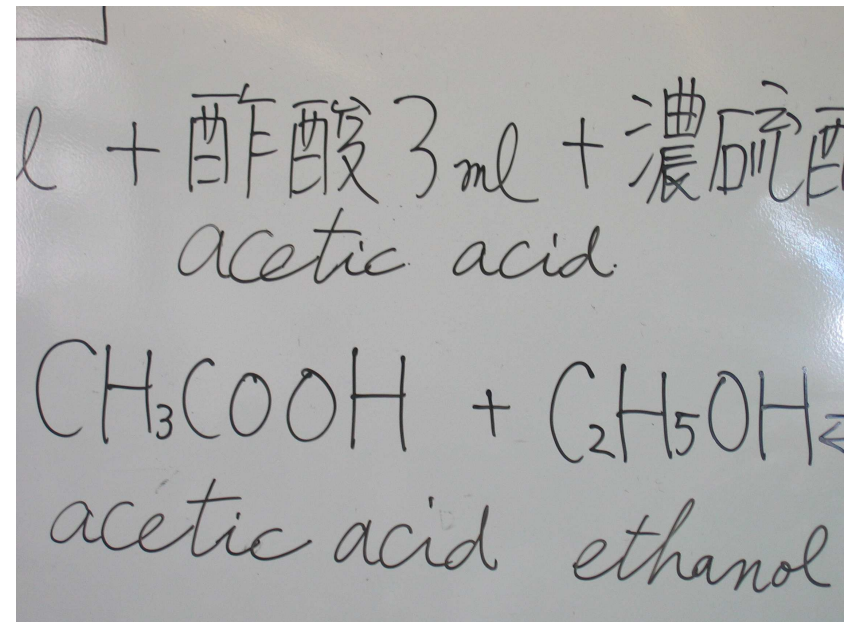 l + 酢酸 3 ml + 濃硫酸
acetic acid
CH₃COOH + C₂H₅OH
acetic acid ethanol